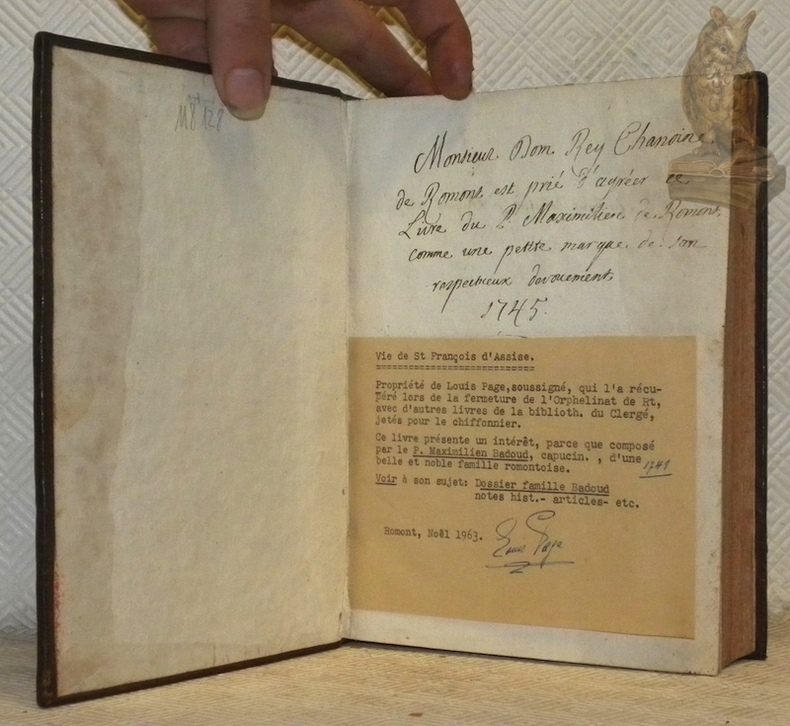 M8128
Monsieur Dom Rey Chanoine
de Romont est prié d'agréer ce
Livre du P. Maximilien de Romont
comme une petite marque de son
respectueux devouement
1745.
Vie de St François d'Assise.
Propriété de Louis Page,soussigné, qui l'a récu-
péré lors de la fermeture de l'Orphelinat de Rt,
avec d'autres livres de la biblioth. du Clergé,
jetés pour le chiffonnier.
Ce livre présente un intérêt, parce que composé
par le P. Maximilien Badoud, capucin. , d'une
belle et noble famille romontoise.
Voir à son sujet: Dossier famille Badoud
notes hist.- articles- etc.
Romont, Noël 1963.
Louis Page